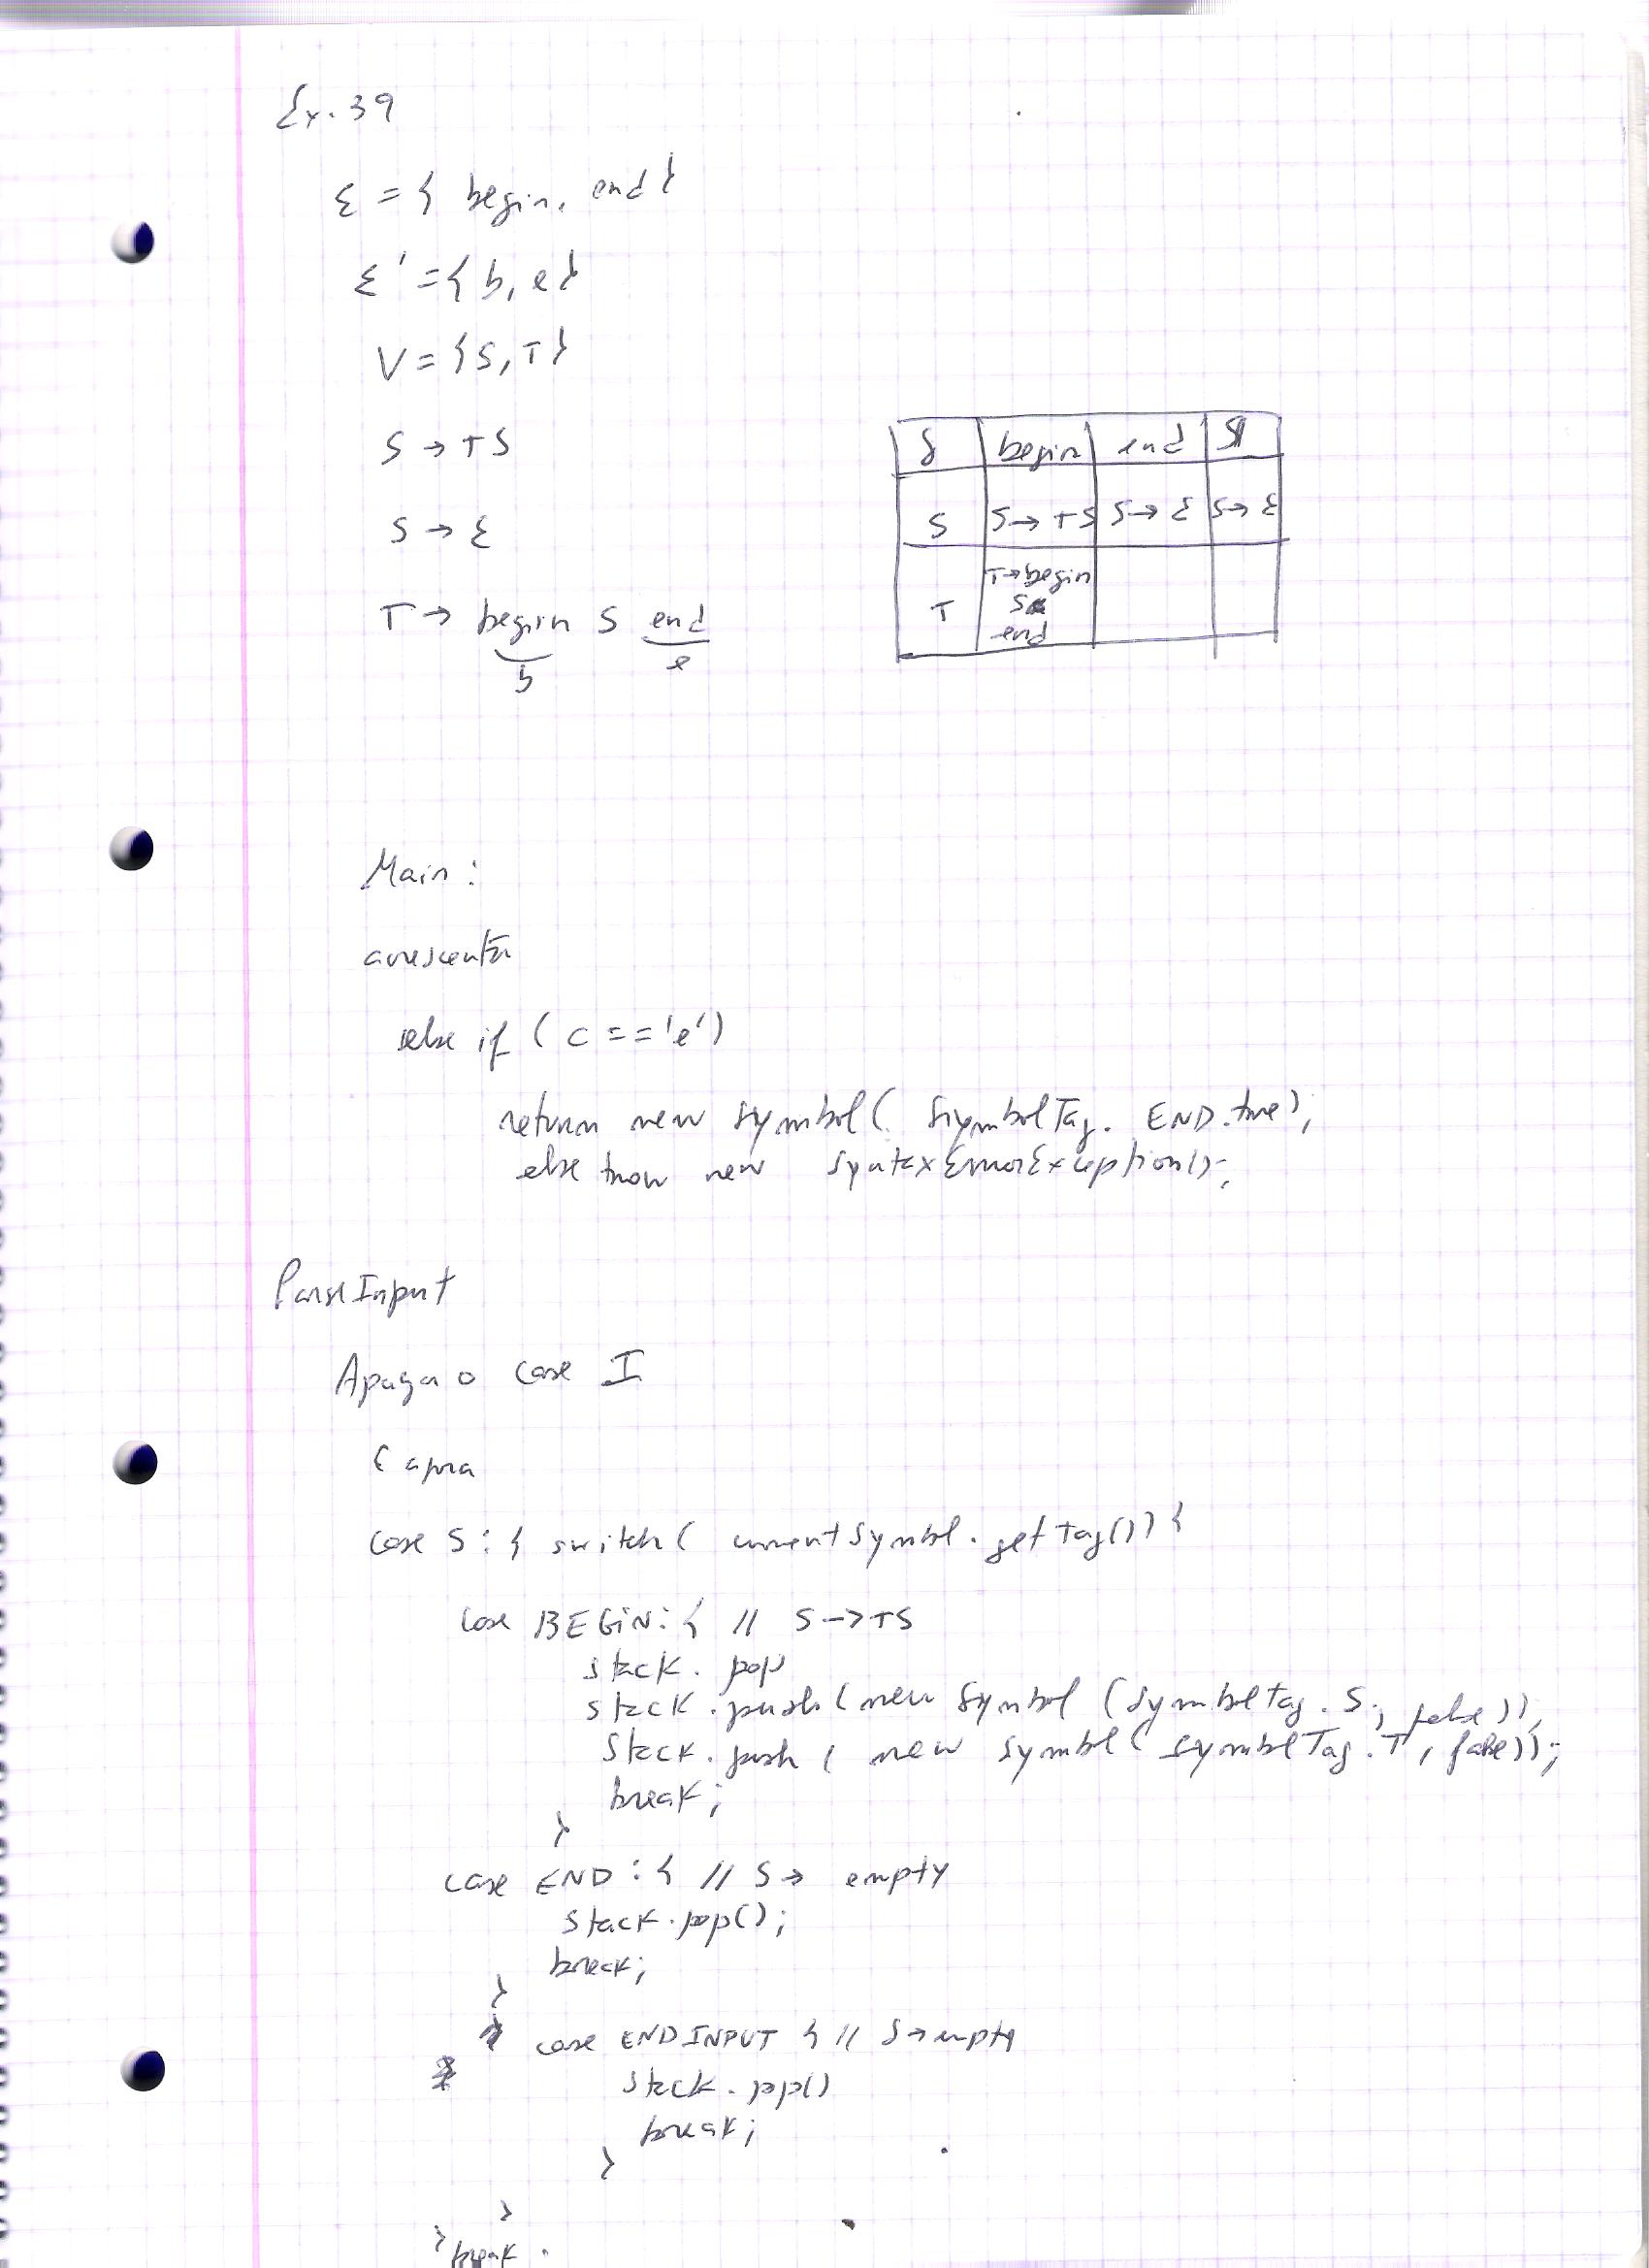 Ex. 39
Σ = { begin, end }
Σ' = { b, e }
V = { S, T }
S → TS
S → ε
T → begin S end
b e
δ begin end $
S S → TS S → ε S → ε
T T → begin S end
Main:
acrescenta
else if ( c == 'e' )
return new Symbol( SymbolTag. END.true);
else throw new SyntaxErrorException();
ParseInput
Apaga o case I
E agora
case S: { switch ( currentSymbol.getTag()) {
case BEGIN: { // S -> TS
stack. pop
stack.push(new Symbol (SymbolTag. S, false));
Stack.push ( new Symbol( SymbolTag.T, false));
break;
}
case END: { // S → empty
stack.pop();
break;
}
case ENDINPUT { // S → empty
stack.pop()
break;
}
}
} break.